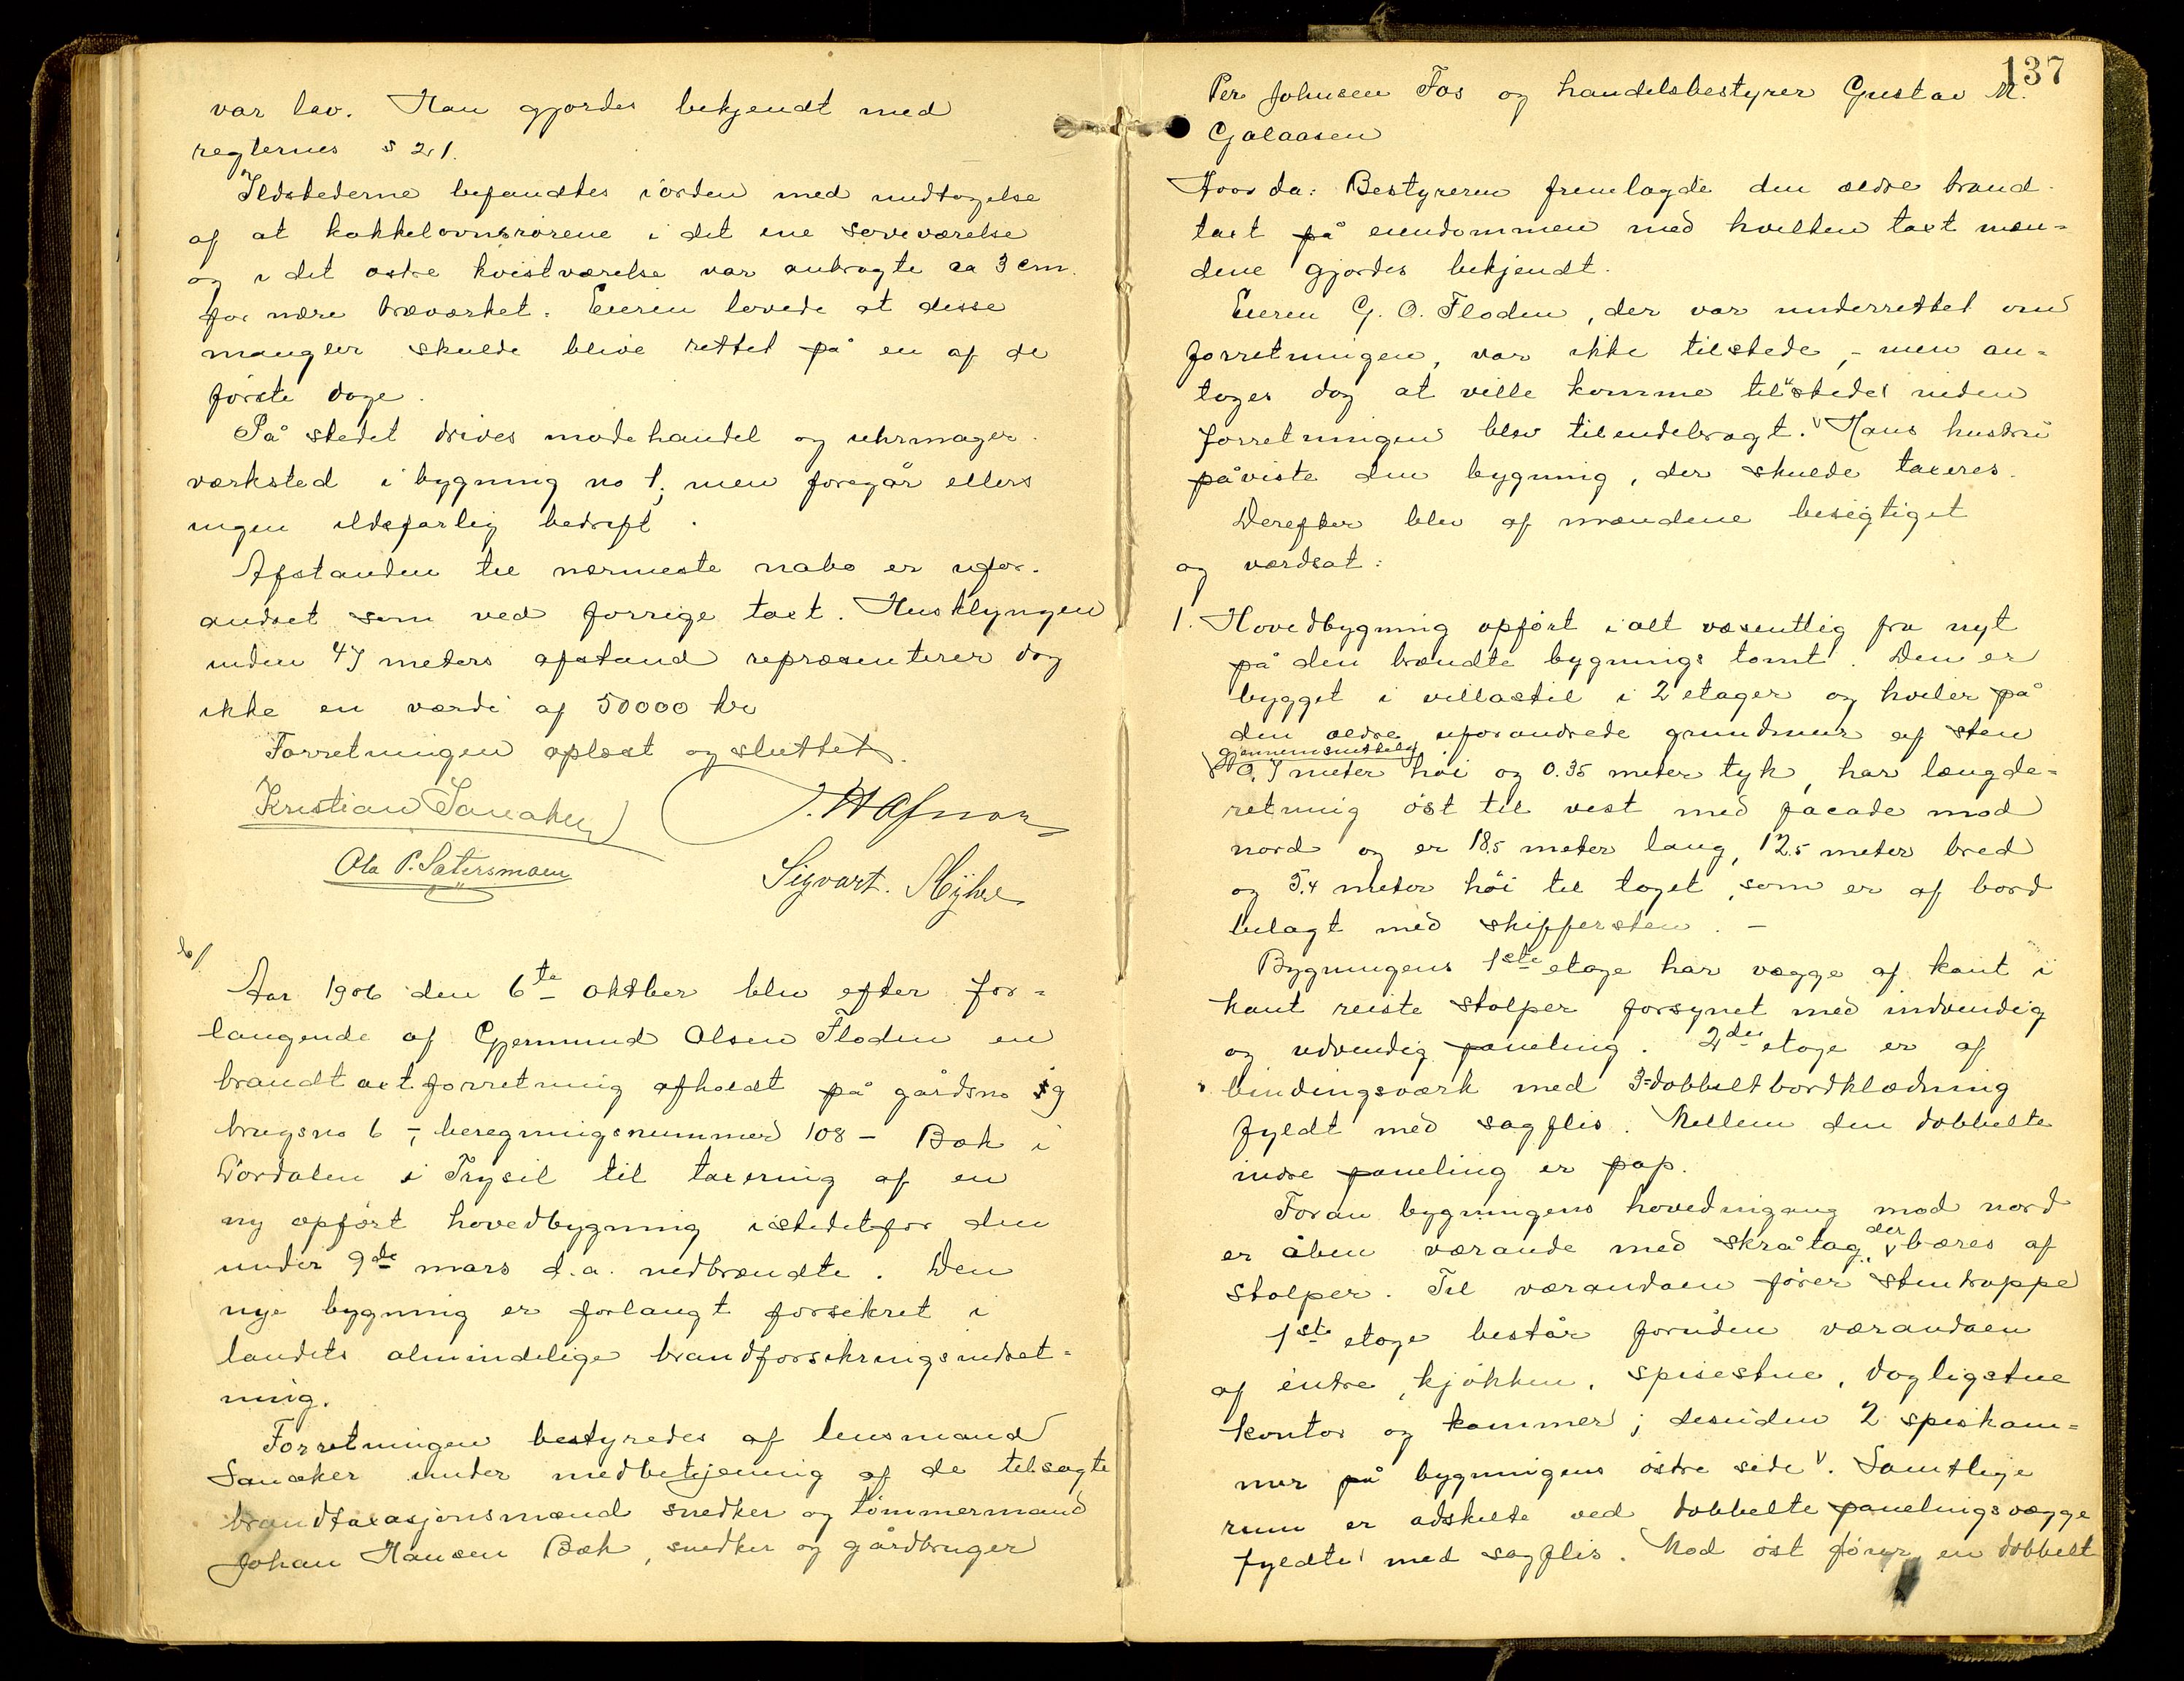 var lav. Han gjordes bekjendt med
reglernes § 21.
Ildstederne befandtes iorden med undtagelse
af at kakkelovnsrørene i det ene soveværelse
og i det østre kvistværelse var anbragte ca 3 cm.
for nære træværket. Eieren lovede at disse
mangler skulde blive rettet på en af de
første dage.
På stedet drives modehandel og uhrmager-
værksted i bygning no 1; men foregår ellers
ingen ildsfarlig bedrift.
Afstanden til nærmeste nabo er ufor-
andret som ved forrige taxt. Husklyngen
inden 47 meters afstand repræsenterer dog
ikke en værdi af 50000 kr
Forretningen oplæst og sluttet.
Kristian Sanaker
Ola P. Sætersmoen Sigvart.
b/
Aar 1906 den 6te oktober blev efter for=
langende af Gjermund Olsen Floden en
brandtaxtforretning afholdt på gårdsno
brugsno 6 -, beregningsnummer 108 - Bæk i
Jordalen i Trysil til taxering af en
ny opført hovedbygning istedetfor den
under 9de mars d.a. nedbrændte. Den
nye bygning er forlangt forsikret i
landets almindelige brandforsikringsindret=
ning.
Forretningen bestyredes af lensmand
Sanaker under medbetjening af de tilsagte
brandtaxasjonsmænd snedker og tømmermand
Johan Hansen Bæk, snedker og gårdbruger
137
Per Johnsen Fos og handelsbestyrer Gustav M.
Galaasen
Hvor da: Bestyreren fremlagde den ældre brand-
taxt på eiendommen med hvilken taxt mæn=
dene gjordes bekjendt.
Eieren G. O. Floden, der var underrettet om
forretningen, var ikke tilstede, - men an=
toges dog at ville komme tilstede inden
forretningen blev tilendebragt. Hans hustru
påviste den bygning, der skulde taxeres.
Derefter blev af mændene besigtiget
og værdsat:
1. Hovedbygning opført i alt væsentlig fra nyt
på den brændte bygnings tomt. Den er
bygget i villastil i 2 etager og hviler på
den ældre uforandrede grundmur af sten
gjennemsnittelig
0.7 meter høi og 0.35 meter tyk, har længde=
retning øst til vest med facade mod
nord og er 18.5 meter lang, 12.5 meter bred
og 5.4 meter høi til taget, som er af bord
belagt med skiffersten. -
Bygningens 1ste etage har vægge af kant i
kant reiste stolper forsynet med indvendig
og udvendig paneling. 2den etage er af
bindingsværk med 3-dobbelt bordklædning
fyldt med sagflis. Mellem den dobbelte
indre paneling er pap.
Foran bygningens hovedingang mod nord
er åben værande med skråtag, der bæres af
stolper. Til værandaen fører stentrappe
1ste etage består foruden værandaen
af entre, kjøkken, spisestue, dagligstue
kontor og kammer; desuden 2 spiskam=
mer på bygningens østre side. Samtlige
rum er adskilte ved dobbelte panelingsvægge
fyldte med sagflis. Mod øst fører en dobbelt